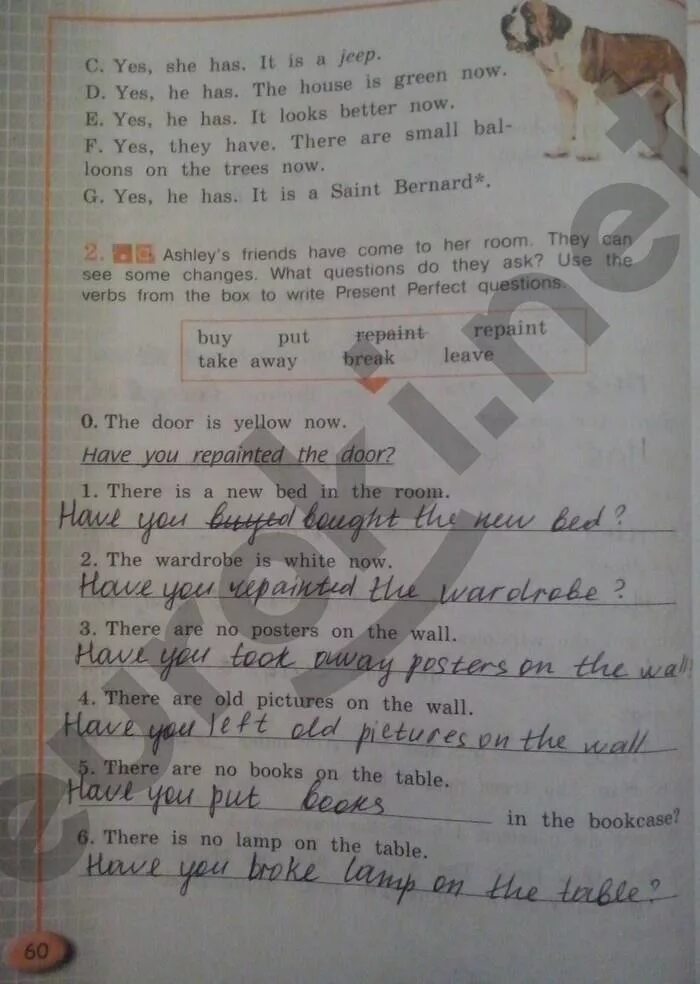 C. Yes, she has. It is a jeep.
D. Yes, he has. The house is green now.
E. Yes, he has. It looks better now.
F. Yes, they have. There are small bal-
loons on the trees now.
G. Yes, he has. It is a Saint Bernard*.
2. Ashley's friends have come to her room. They can
see some changes. What questions do they ask? Use the
verbs from the box to write Present Perfect questions.
buy put repaint repaint
take away break leave
0. The door is yellow now.
Have you repainted the door?
1. There is a new bed in the room.
Have you buyed bought the new bed?
2. The wardrobe is white now.
Have you repainted the wardrobe?
3. There are no posters on the wall.
Have you took away posters on the wall?
4. There are old pictures on the wall.
Have you left old pictures on the wall
5. There are no books on the table.
Have you put books in the bookcase?
6. There is no lamp on the table.
Have you broke lamp on the table?
60
euroki.net